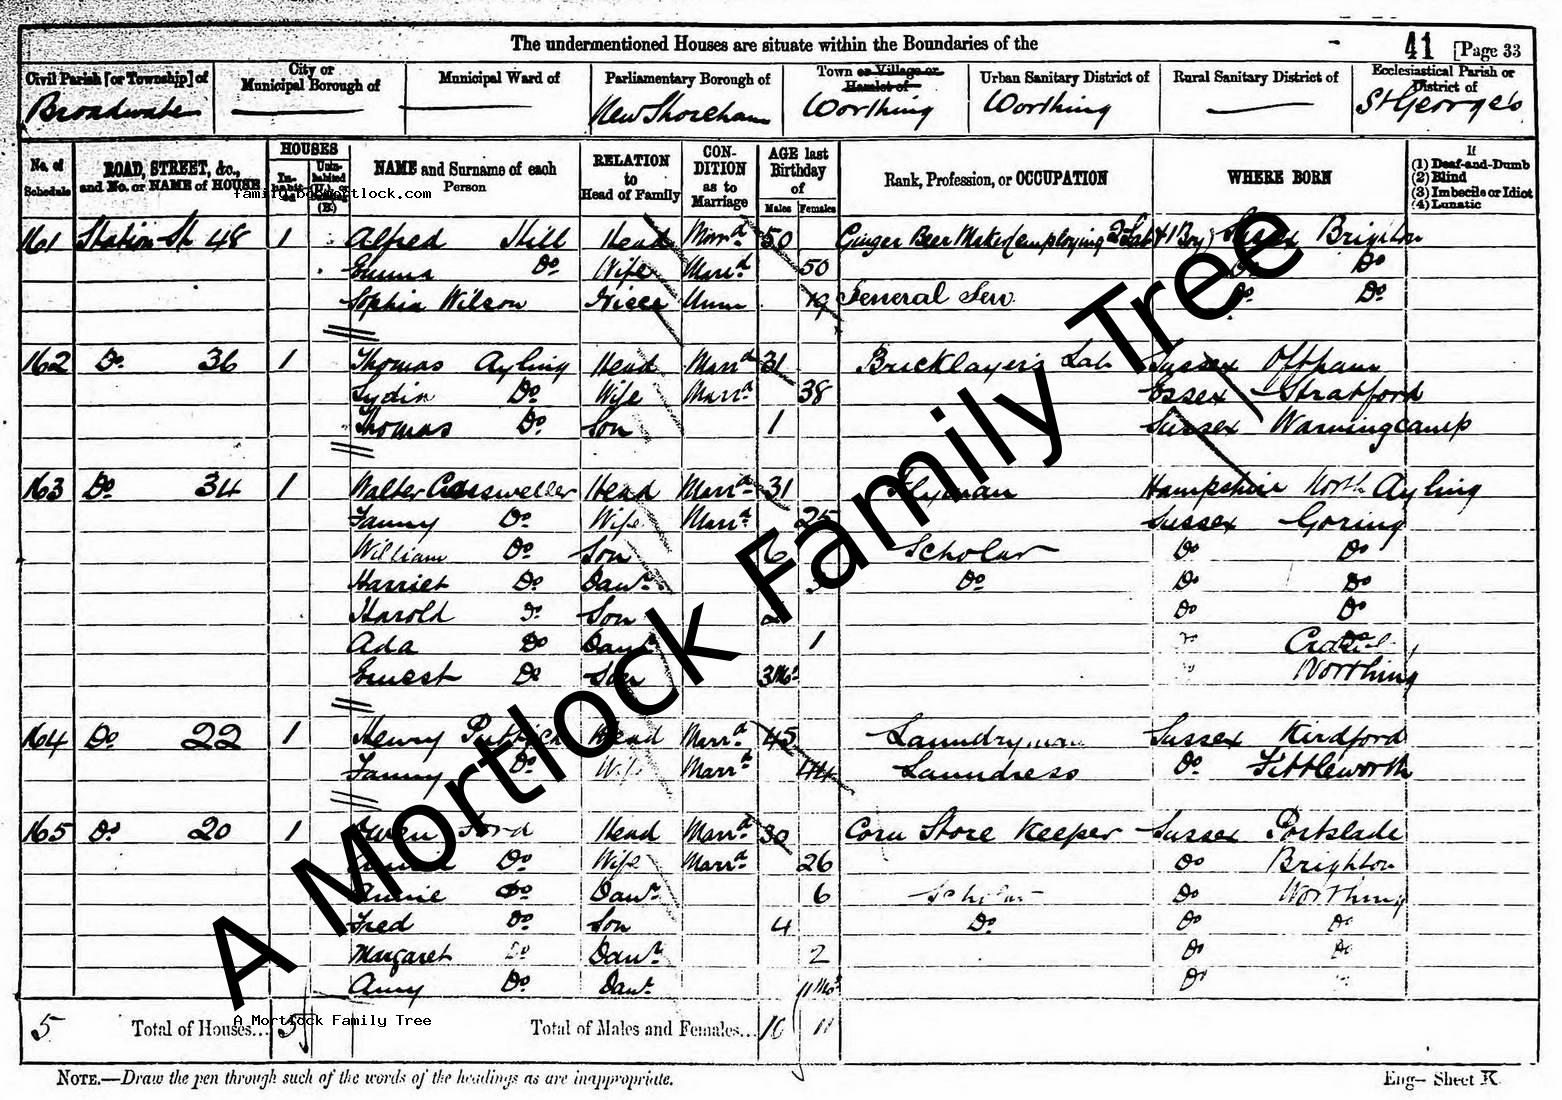 The undermentioned Houses are situate within the Boundaries of the 41 [Page 33
Civil Parish [or Township] of City or Municipal Borough of Municipal Ward of Parliamentary Borough of Town or Village or Hamlet of Urban Sanitary District of Rural Sanitary District of Ecclesiastical Parish or District of
Broadwater New Shoreham Worthing Worthing St George's
No. of Schedule ROAD, STREET, &c., and No. or NAME of HOUSE HOUSES Inhabited Uninhabited (B.) NAME and Surname of each Person RELATION to Head of Family CONDITION as to Marriage AGE last Birthday of Males Females Rank, Profession, or OCCUPATION WHERE BORN If (1) Deaf-and-Dumb (2) Blind (3) Imbecile or Idiot (4) Lunatic
161 Station St 48 1 Alfred Hill Head Marrd 50 Ginger Beer Maker (employing 2 Lab & 1 Boy) Sussex Brighton
Emma Do Wife Marrd 50 Do Do
Sophia Wilson Niece Unm 19 General Serv. Do Do
162 Do 36 1 Thomas Ayling Head Marrd 31 Bricklayer's Lab Sussex Offham
Lydia Do Wife Marrd 38 Essex Stratford
Thomas Do Son 1 Sussex Warningcamp
163 Do 34 1 Walter Cressweller Head Marrd 31 Flyman Hampshire North Ayling
Fanny Do Wife Marrd 25 Sussex Goring
William Do Son 6 Scholar Do Do
Harriet Do Dawr Do Do Do
Harold Do Son Do Do
Ada Do Dawr 1
Ernest Do Son 3 Mos Worthing
164 Do 22 1 Henry Puttick Head Marrd 45 Laundryman Sussex Kirdford
Fanny Do Wife Marrd 44 Laundress Do Fittleworth
165 Do 20 1 Owen Ford Head Marrd 30 Corn Store Keeper Sussex Portslade
Do Wife Marrd 26 Do Brighton
Annie Do Dawr 6 Scholar Do Worthing
Fred Do Son 4 Do Do Do
Margaret Do Dawr 2 Do Do
Amy Do Dawr 11 Mos Do
5 Total of Houses... 5 Total of Males and Females... 10 11
NOTE.—Draw the pen through such of the words of the headings as are inappropriate. Eng— Sheet K
A Mortlock Family Tree
A Mortlock Family Tree